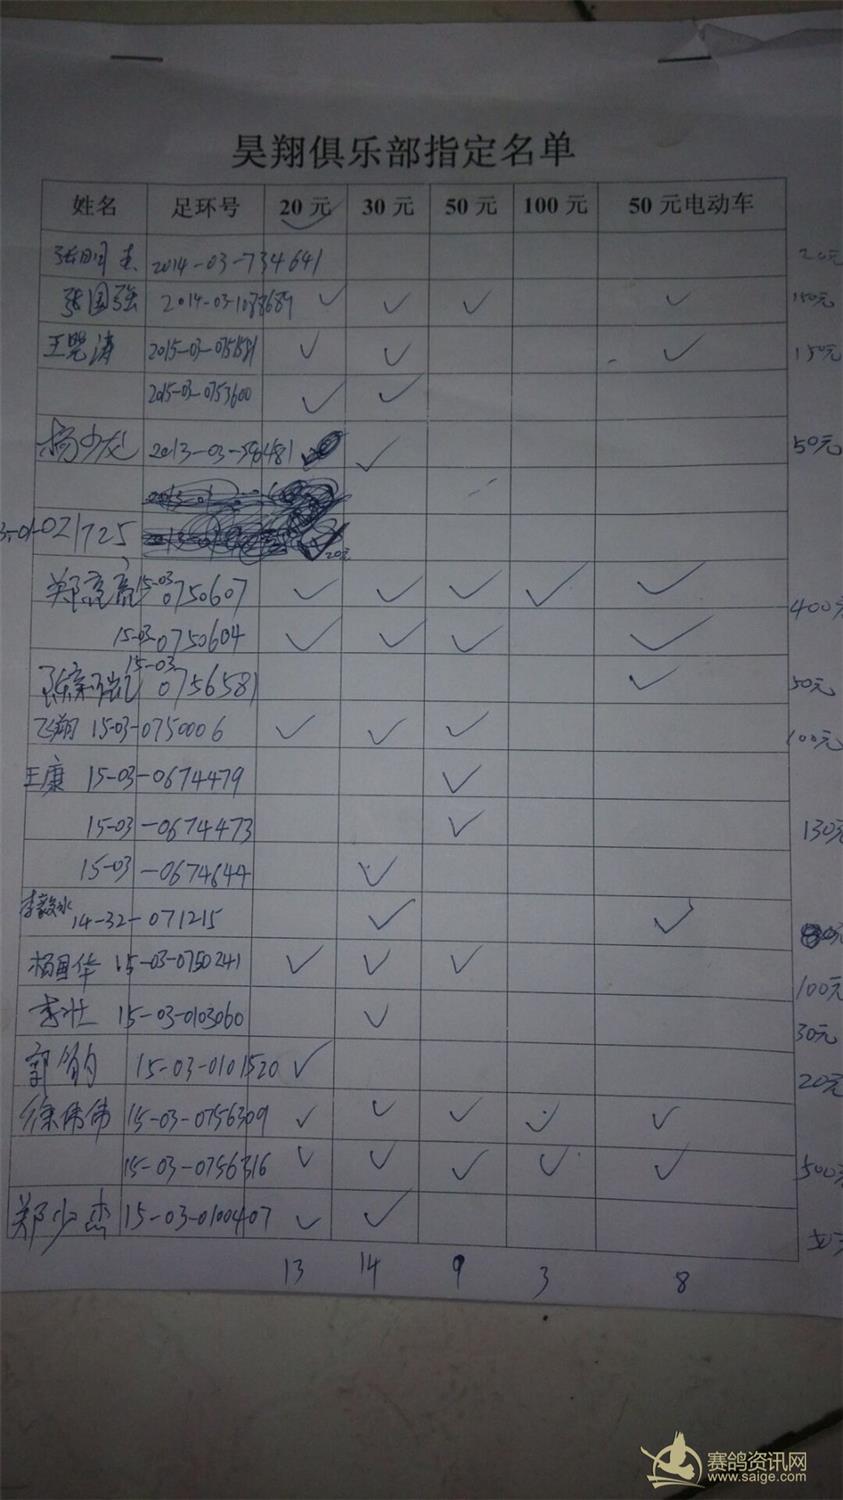 昊翔俱乐部指定名单
姓名 足环号 20元 30元 50元 100元 50元电动车
张明 2014-03-734641 20元
张国强 2014-03-1038689 ✓ ✓ ✓ ✓ 150元
王 涛 2015-03-0751581 ✓ ✓ ✓ 150元
2015-03-0753600 ✓ ✓
杨少龙 2013-03-396481 ✓ 50元
021725 ✓ 20元
郑 15-03 0750607 ✓ ✓ ✓ ✓ ✓ 400元
15-03-0750604 ✓ ✓ ✓ ✓
张 15-03 0756581 ✓ 50元
飞翔 15-03-0750006 ✓ ✓ ✓ 100元
王康 15-03-0674479 ✓
15-03-0674473 ✓ 130元
15-03-0674644 ✓
李毅水 14-32-071215 ✓ ✓
杨国华 15-03-0750241 ✓ ✓ ✓ 100元
李壮 15-03-0103060 ✓ 30元
郭 15-03-0101520 ✓ 20元
徐伟伟 15-03-0756309 ✓ ✓ ✓ ✓ ✓
15-03-0756316 ✓ ✓ ✓ ✓ ✓ 500元
郑少杰 15-03-0100407 ✓ ✓
13 14 9 3 8
赛鸽资讯网
www.saige.com